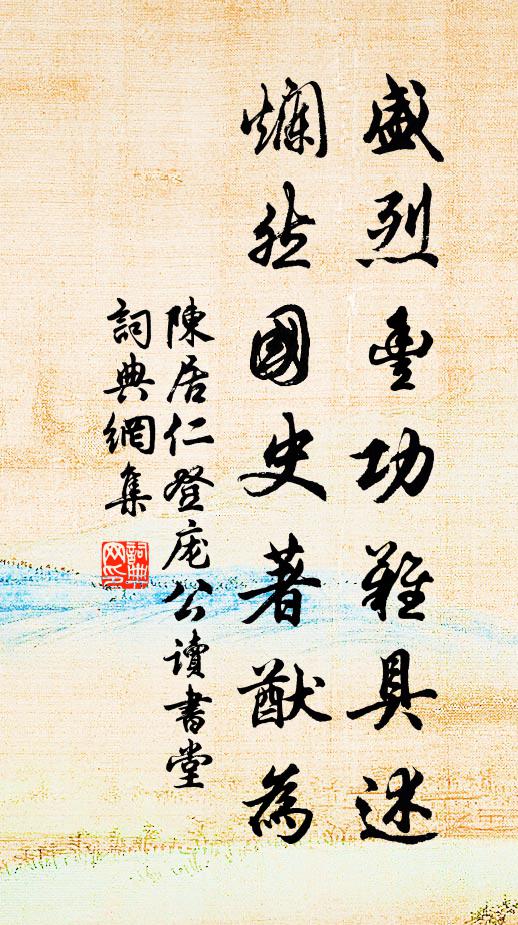 盛烈豐功難具述
爛然國史著猷為
陳居仁登庞公讀書堂
詞典網集
詞典网印